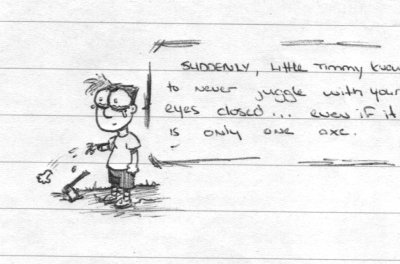 SUDDENLY, Little Timmy knew
to never juggle with your
eyes closed... even if it
is only one axe.